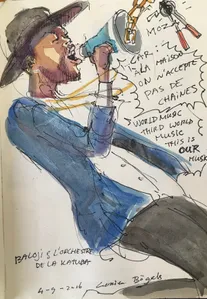 MOZ
CAR...
"À LA MAISON
ON N'ACCEPTE
PAS DE
CHAÎNES
WORLD MUSIC
THIRD WORLD
MUSIC
THIS IS
OUR
MUSIK
BALOJI & L'ORCHESTRE
DE LA KATUBA
4-9-2016